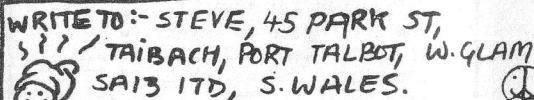 WRITE TO:- STEVE, 45 PARK ST,
TAIBACH, PORT TALBOT, W. GLAM
SA13 1TD, S. WALES.